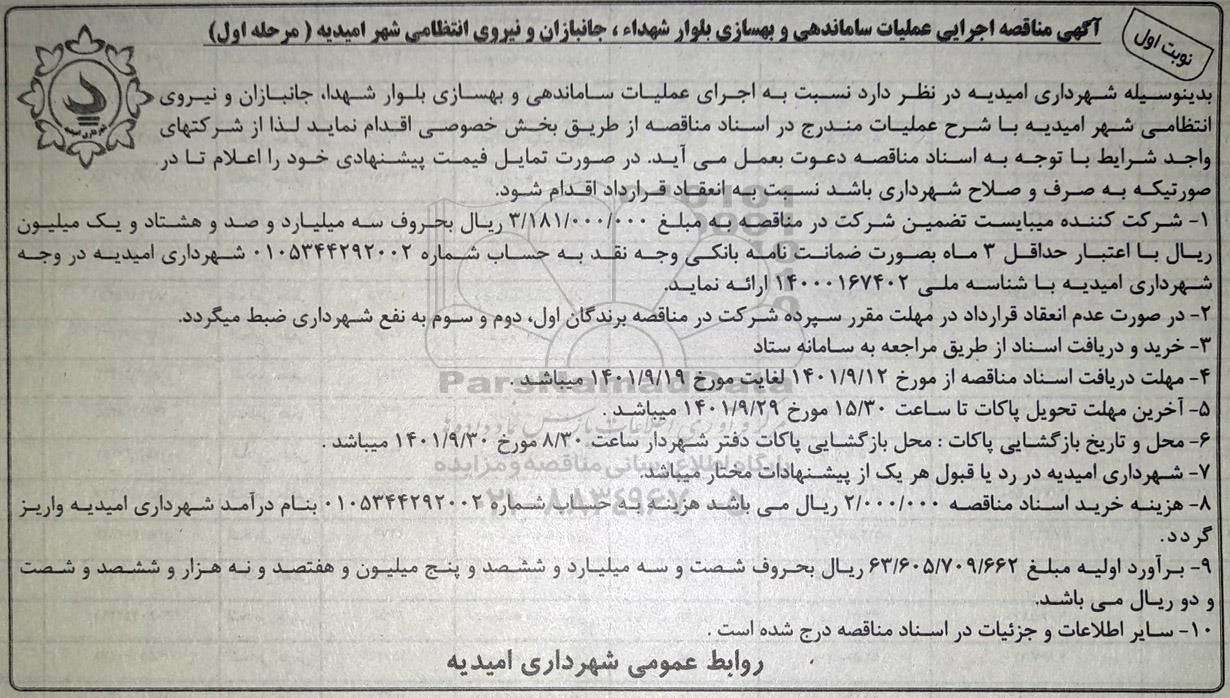 نوبت اول
آگهی مناقصه اجرایی عملیات ساماندهی و بهسازی بلوار شهداء ، جانبازان و نیروی انتظامی شهر امیدیه ( مرحله اول)
بدینوسیله شهرداری امیدیه در نظر دارد نسبت به اجرای عملیات ساماندهی و بهسازی بلوار شهدا، جانبازان و نیروی
انتظامی شهر امیدیه با شرح عملیات مندرج در اسناد مناقصه از طریق بخش خصوصی اقدام نماید لذا از شرکتهای
واجد شرایط با توجه به اسناد مناقصه دعوت بعمل می آید. در صورت تمایل قیمت پیشنهادی خود را اعلام تا در
صورتیکه به صرف و صلاح شهرداری باشد نسبت به انعقاد قرارداد اقدام شود.
۱- شرکت کننده میبایست تضمین شرکت در مناقصه به مبلغ ۳/۱۸۱/۰۰۰/۰۰۰ ریال بحروف سه میلیارد و صد و هشتاد و یک میلیون
ریال با اعتبار حداقل ۳ ماه بصورت ضمانت نامه بانکی وجه نقد به حساب شماره ۰۱۰۵۳۴۴۲۹۲۰۰۲ شهرداری امیدیه در وجه
شهرداری امیدیه با شناسه ملی ۱۴۰۰۰۱۶۷۴۰۲ ارائه نماید.
۲- در صورت عدم انعقاد قرارداد در مهلت مقرر سپرده شرکت در مناقصه برندگان اول، دوم و سوم به نفع شهرداری ضبط میگردد.
۳- خرید و دریافت اسناد از طریق مراجعه به سامانه ستاد
۴- مهلت دریافت اسناد مناقصه از مورخ ۱۴۰۱/۹/۱۲ لغایت مورخ ۱۴۰۱/۹/۱۹ میباشد .
۵- آخرین مهلت تحویل پاکات تا ساعت ۱۵/۳۰ مورخ ۱۴۰۱/۹/۲۹ میباشد .
۶- محل و تاریخ بازگشایی پاکات : محل بازگشایی پاکات دفتر شهردار ساعت ۸/۳۰ مورخ ۱۴۰۱/۹/۳۰ میباشد .
۷- شهرداری امیدیه در رد یا قبول هر یک از پیشنهادات مختار میباشد.
۸- هزینه خرید اسناد مناقصه ۲/۰۰۰/۰۰۰ ریال می باشد هزینه به حساب شماره ۰۱۰۵۳۴۴۲۹۲۰۰۲ بنام درآمد شهرداری امیدیه واریز
گردد.
۹- برآورد اولیه مبلغ ۶۳/۶۰۵/۷۰۹/۶۶۲ ریال بحروف شصت و سه میلیارد و ششصد و پنج میلیون و هفتصد و نه هزار و ششصد و شصت
و دو ریال می باشد.
۱۰- سایر اطلاعات و جزئیات در اسناد مناقصه درج شده است .
روابط عمومی شهرداری امیدیه
شهرداری امیدیه
ParsNamadData